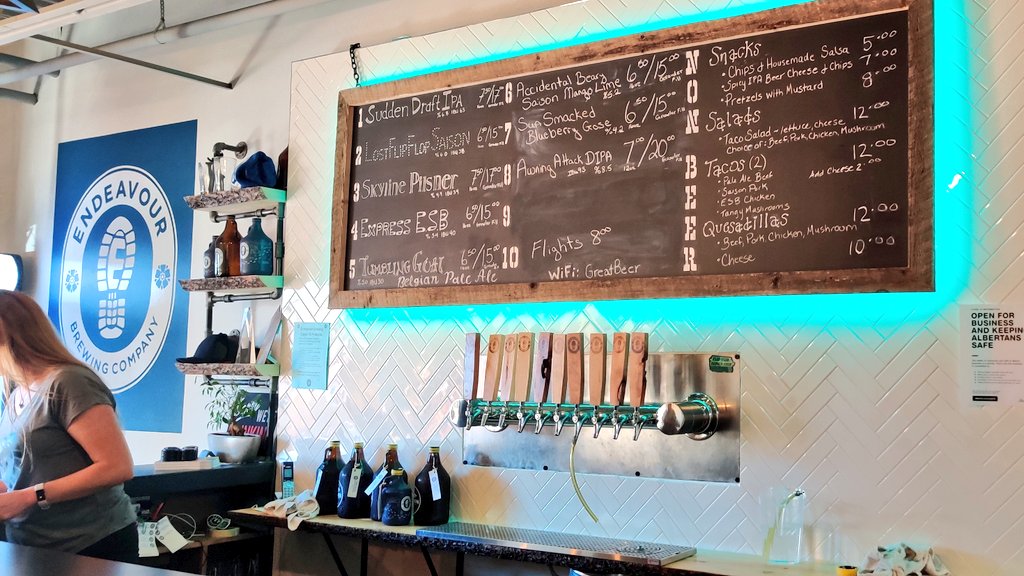 ENDEAVOUR
BREWING COMPANY
1 Sudden Draft IPA
2 LostFlipFlop Saison 6.00/15.00
3 Skyline Pilsner
4 Express ESB 6.00/15.00
5 Tumbling Goat 6.00/15.00
Belgian Pale Ale
6 Accidental Bears 6.00/15.00
Saison Mango Lime
7 Sun Smacked 6.50/15.00
Blueberry Gose
8 Awning Attack DIPA 7.00/20.00
9
10 Flights 8.00
WiFi: GreatBeer
NON BEER
Snacks
• Chips & Housemade Salsa 5.00
• Spicy IPA Beer Cheese & Chips 7.00
• Pretzels with Mustard 8.00
Salads
Taco Salad - lettuce, cheese 12.00
Choice of: Beef, Pork, Chicken, Mushroom
Tacos (2) 12.00
• Pale Ale Beef Add Cheese 2.00
• Saison Pork
• ESB Chicken
• Tangy Mushrooms
Quesadillas
• Beef, Pork, Chicken, Mushroom 12.00
• Cheese 10.00
OPEN FOR
BUSINESS
AND KEEPIN
ALBERTANS
SAFE